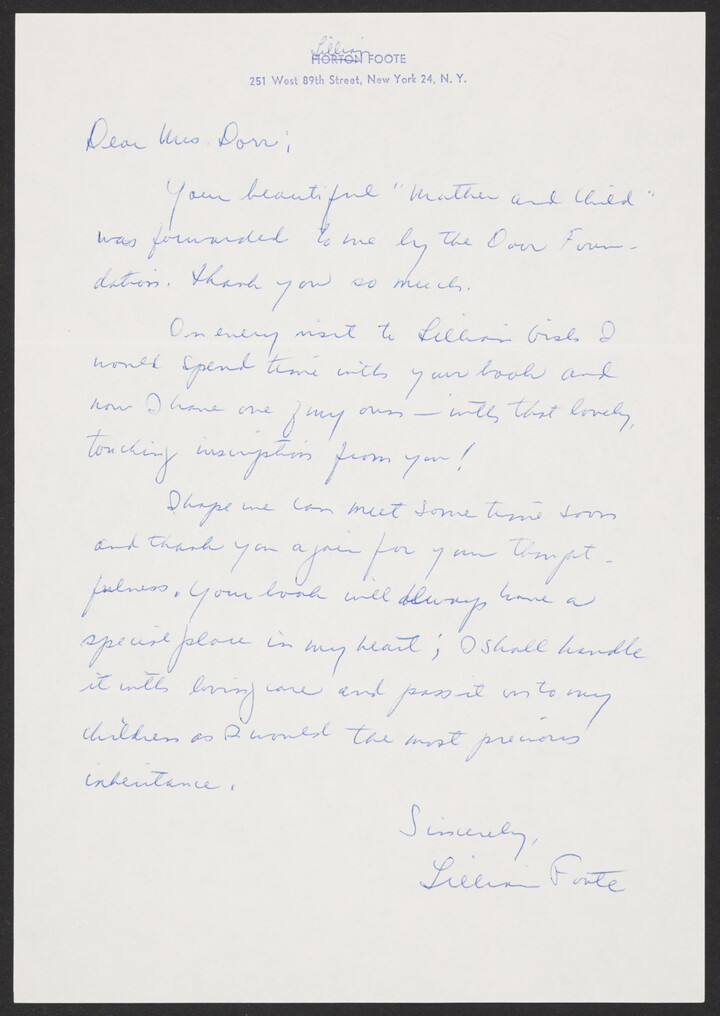 Lillian
HORTON FOOTE
251 West 89th Street, New York 24, N. Y.
Dear Mrs. Dorr;
Your beautiful "Mother and Child"
was forwarded to me by the Dorr Foun-
dation. Thank you so much.
On every visit to Lillian Gish I
would spend time with your book and
now I have one of my own — with that lovely,
touching inscription from you!
I hope we can meet some time soon
and thank you again for your thought-
fulness. Your book will always have a
special place in my heart; I shall handle
it with loving care and pass it on to my
children as I would the most precious
inheritance.
Sincerely,
Lillian Foote